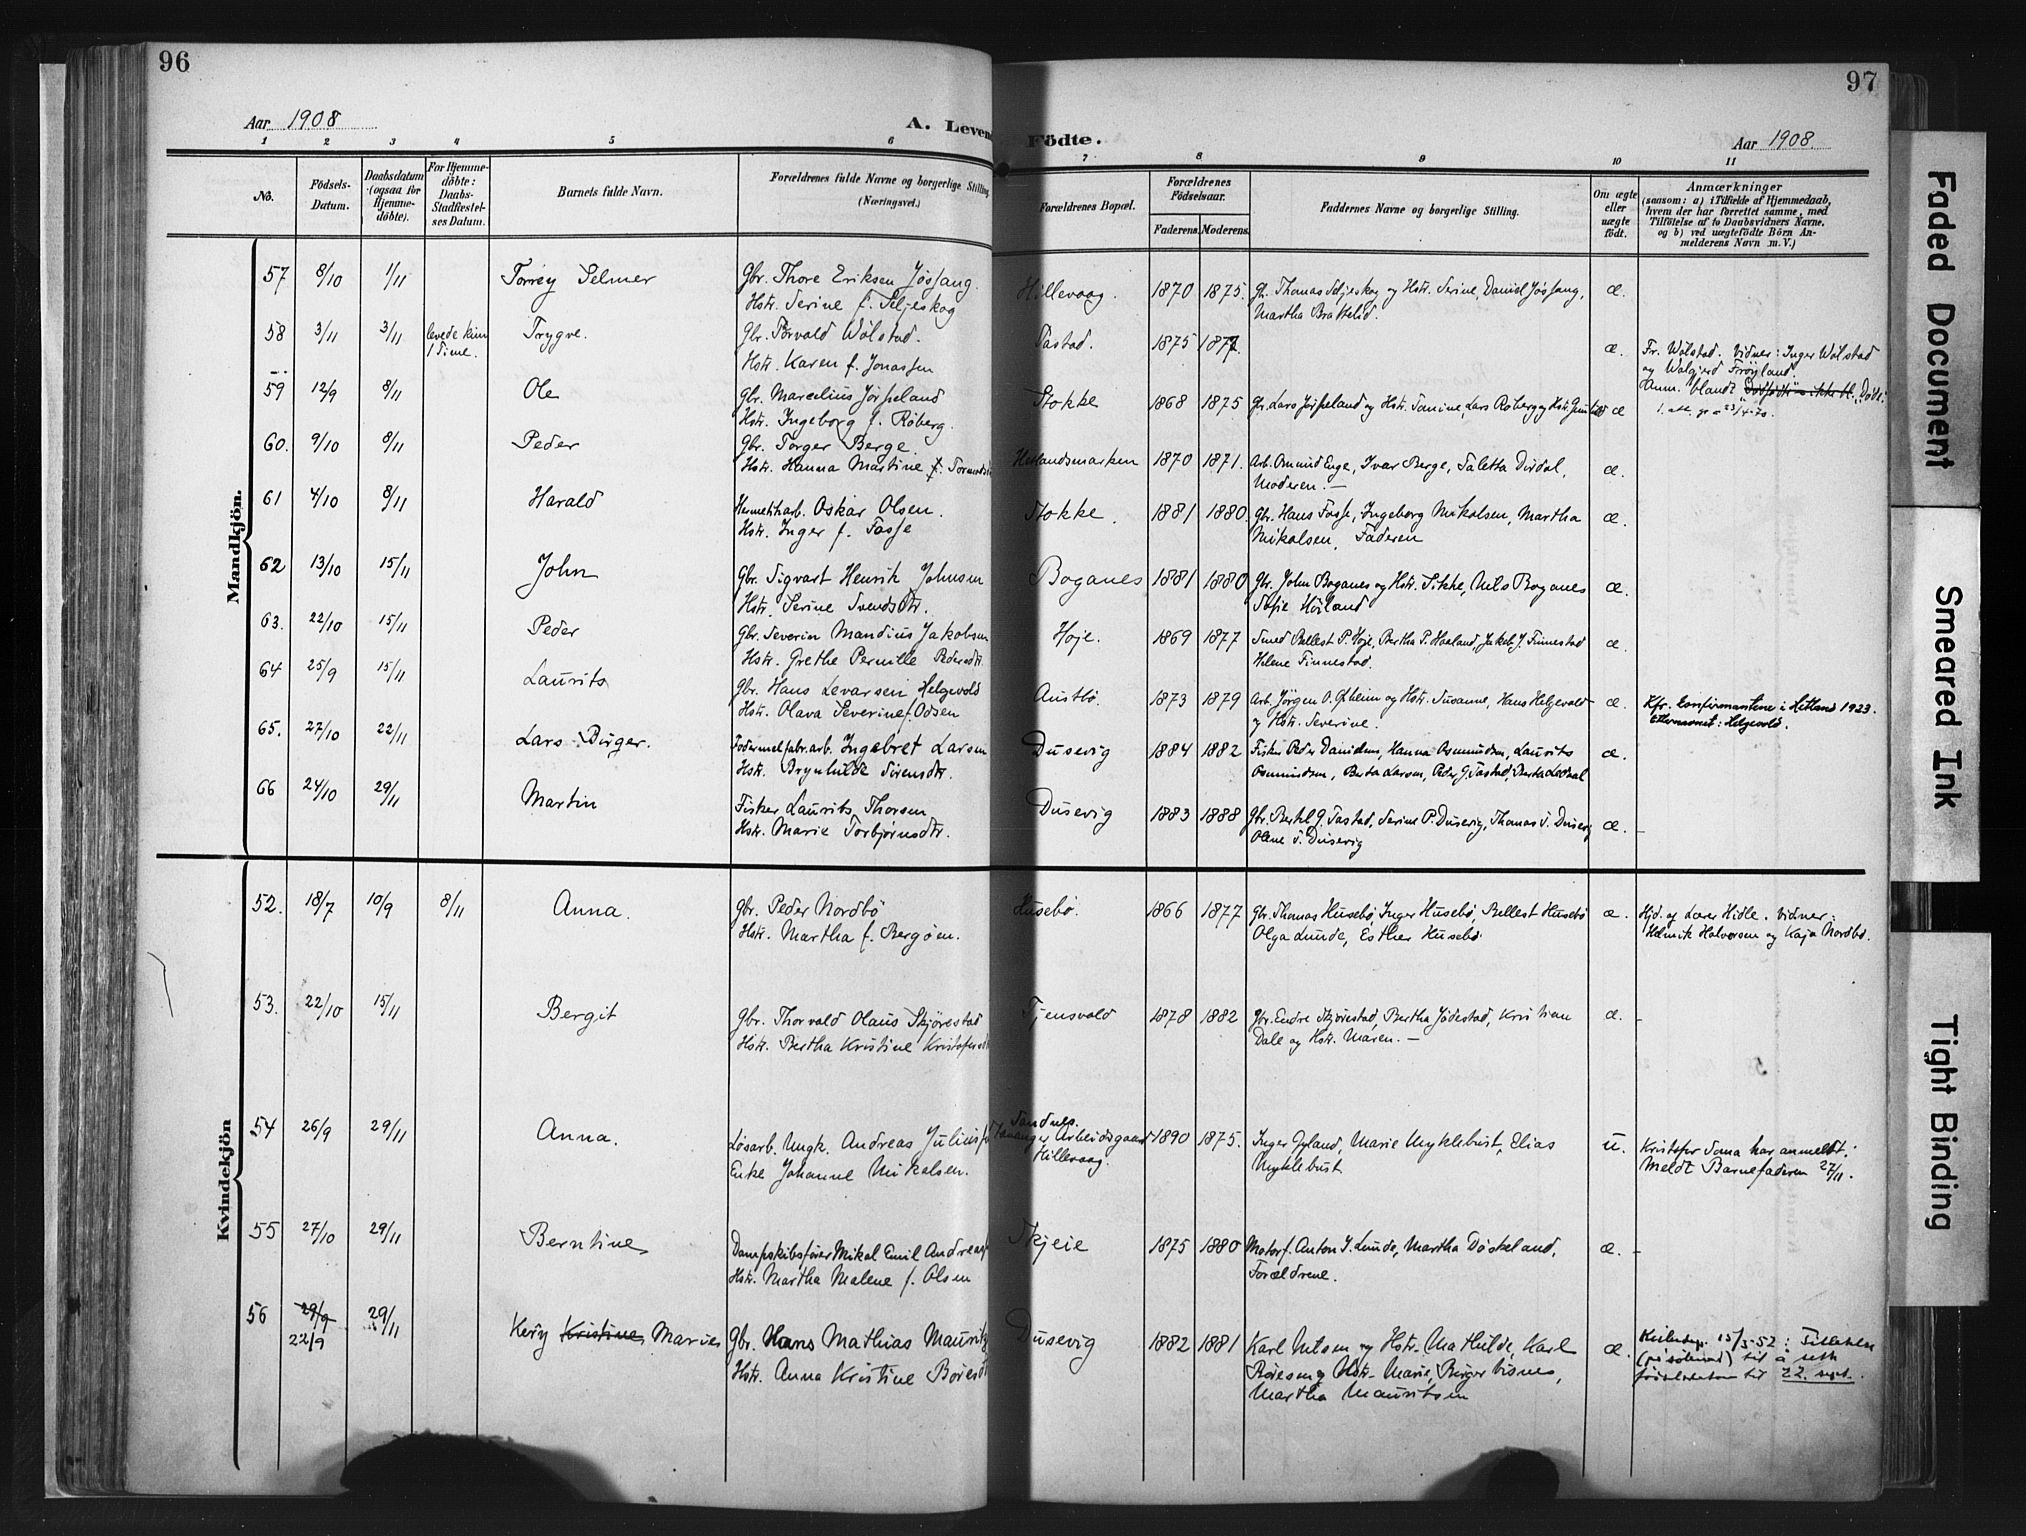 96
97
Aar 1908
A. Levende
Födte.
Aar 1908
1 2 3 4 5 6 7 8 9 10 11
No.
Födsels-
Datum.
Daabsdatum
(ogsaa for
Hjemme-
döbte).
For Hjemme-
döbte:
Daabs-
Stadfæstel-
ses Datum.
Barnets fulde Navn.
Forældrenes fulde Navne og borgerlige Stilling
(Næringsvei.)
Forældrenes Bopæl.
Forældrenes
Födselsaar.
Faderens. Moderens.
Faddernes Navne og borgerlige Stilling.
Om ægte
eller
uægte
födt.
Anmærkninger
(saasom: a) i Tilfælde af Hjemmedaab,
hvem der har forrettet samme, med
Tilföielse af to Daabsvidners Navne,
og b) ved uægtefödte Börn An-
melderens Navn m. V.)
Mandkjön.
57 8/10 1/11 Torrey Selmer Gbr. Thore Eriksen Jössang. Hillevaag. 1870 1875. Gbr. Thomas Seljeskog og Hstr. Serine, Daniel Jössang, æ.
Hstr. Serine f. Seljeskog Martha Brattelid.
58 3/11 3/11 levede kun Trygve. Gbr. Torvald Wølstad. Tastad. 1875 1877. æ. Fr. Wølstad. Vidner: Inger Wølstad
1 Time. Hstr. Karen f. Jonassen og Frøyland.
59 12/9 8/11 Ole Gbr. Marcelius Jørpeland Stokke 1868 1875 Gbr. Lars Jørpeland og Hstr. Tomine, Lars Røberg og Hstr. æ Anm. blandt Døde.
Hstr. Ingeborg f. Røberg.
60. 9/10 8/11 Peder Gbr. Torger Berge. Hetlandsmarken 1870 1871. Arb. Omund Enge, Ivar Berge, Taletta Dirdal, æ.
Hstr. Hanna Martine f. Moderen. —
61 4/10 8/11 Harald Hermetikarb. Oskar Olsen. Stokke. 1881 1880 Gbr. Hans Tasse, Ingeborg Mikalsen, Martha æ.
Hstr. Inger f. Tasse Mikalsen, Faderen
62 13/10 15/11 John Gbr. Sigvart Henrik Johnsen Boganes 1881 1880 Gbr. John Boganes og Hstr. Sikke, Nils Boganes æ.
Hstr. Serine Svendsdtr. Sofie Høiland
63. 22/10 15/11 Peder Gbr. Severin Mandius Jakobsen Høje. 1869 1877 Smed Pellest P. Høje, Bertha P. Haaland, Jakob J. Finnestad æ.
Hstr. Grethe Pernille Pedersdtr. Helene Finnestad.
64 25/9 15/11 Laurits Gbr. Hans Levarsen Helgevold Austbø. 1873 1879 Arb. Jörgen O. Ofheim og Hstr. Susanne, Hans Helgevold æ. Kfr. konfirmantene i Hetland 1923.
Hstr. Olava Severine f. Odsen og Hstr. Severine. Etternavnet: Helgevold.
65. 27/10 22/11 Lars Birger. Fodermelfabr.arb. Ingebret Larsen Dusevig 1884 1882 Fisker Peder Danielsen, Hanna Osmundsen, Laurits æ.
Hstr. Brynhilde Sörensdtr. Osmundsen, Berta Larsen, Peder G. Tastad, Berta Ladsal
66 24/10 29/11 Martin Fisker Laurits Thorsen Dusevig 1883 1888 Gbr. Bertel G. Tastad, Serine P. Dusevig, Thomas S. Dusevig æ. -
Hstr. Marie Torbjørnsdtr. Olene S. Dusevig
Kvindekjön
52. 18/7 10/9 8/11 Anna. Gbr. Peder Nordbö Husebö. 1866 1877 Gbr. Thomas Husebö, Inger Husebö, Pellest Husebö æ. Hjd. af Lærer Hidle. Vidner:
Hstr. Martha f. Bergöen. Olga Lunde, Esther Husebö Helmik Halvorsen og Kaja Nordbö.
53. 22/10 15/11 Bergit Gbr. Thorvald Olaus Skjörestad Tjensvold 1878 1882 Gbr. Endre Skjörestad, Bertha Jödestad, Kristian æ. -
Hstr. Bertha Kristine Kristofersdtr Dale og Hstr. Maren. —
54 26/9 29/11 Anna. Løsarb. Ungk. Andreas Julius Sandnes. Arbeidsgaard 1890 1875. Inger Gyland, Marie Myklebust, Elias u. Kristofer Soma har anmeldt.
Enke Johanne Mikalsen. Hillevaag. Myklebust Meldt Barnefaderen 27/11.
55 27/10 29/11 Berntine Dampskibsfører Mikal Emil Andreas Skjeie 1875 1880 Motorf. Anton J. Lunde, Martha Döskeland, æ. -
Hstr. Martha Malene f. Olsen Forældrene.
56 29/9 29/11 Kery Kristine Marie Gbr. Hans Mathias Mauritz Dusevig 1882 1881 Karl Nilsen og Hstr. Mathilde, Karl æ. 15/3-52: Tillatelse
22/9 Hstr. Anna Kristine Börresdtr og Hstr. Marie, Birger Nisnes, til å rette
Martha Mauritsen fødselsdatoen til 22. sept.
Faded Document
Smeared Ink
Tight Binding